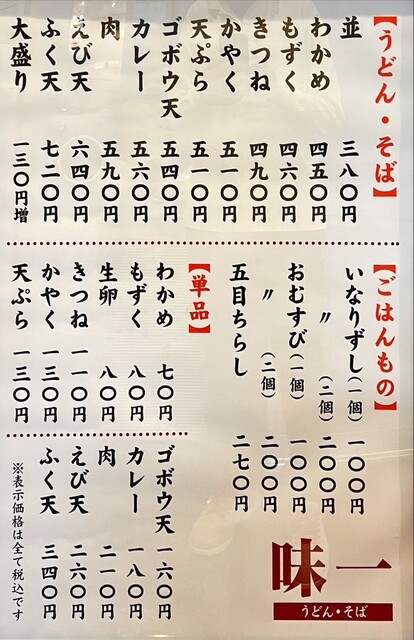 【うどん・そば】
並 三八〇円
わかめ 四五〇円
もずく 四六〇円
きつね 四九〇円
かやく 五一〇円
天ぷら 五一〇円
ゴボウ天 五四〇円
カレー 五六〇円
肉 五九〇円
えび天 六四〇円
ふく天 七二〇円
大盛り 一三〇円増
【ごはんもの】
いなりずし(一個) 一〇〇円
〃 (二個) 二〇〇円
おむすび(一個) 一〇〇円
〃 (二個) 二〇〇円
五目ちらし 二七〇円
【単品】
わかめ 七〇円
もずく 八〇円
生卵 八〇円
きつね 一一〇円
かやく 一三〇円
天ぷら 一三〇円
ゴボウ天 一六〇円
カレー 一八〇円
肉 二一〇円
えび天 二六〇円
ふく天 三四〇円
※表示価格は全て税込です
一味
うどん・そば